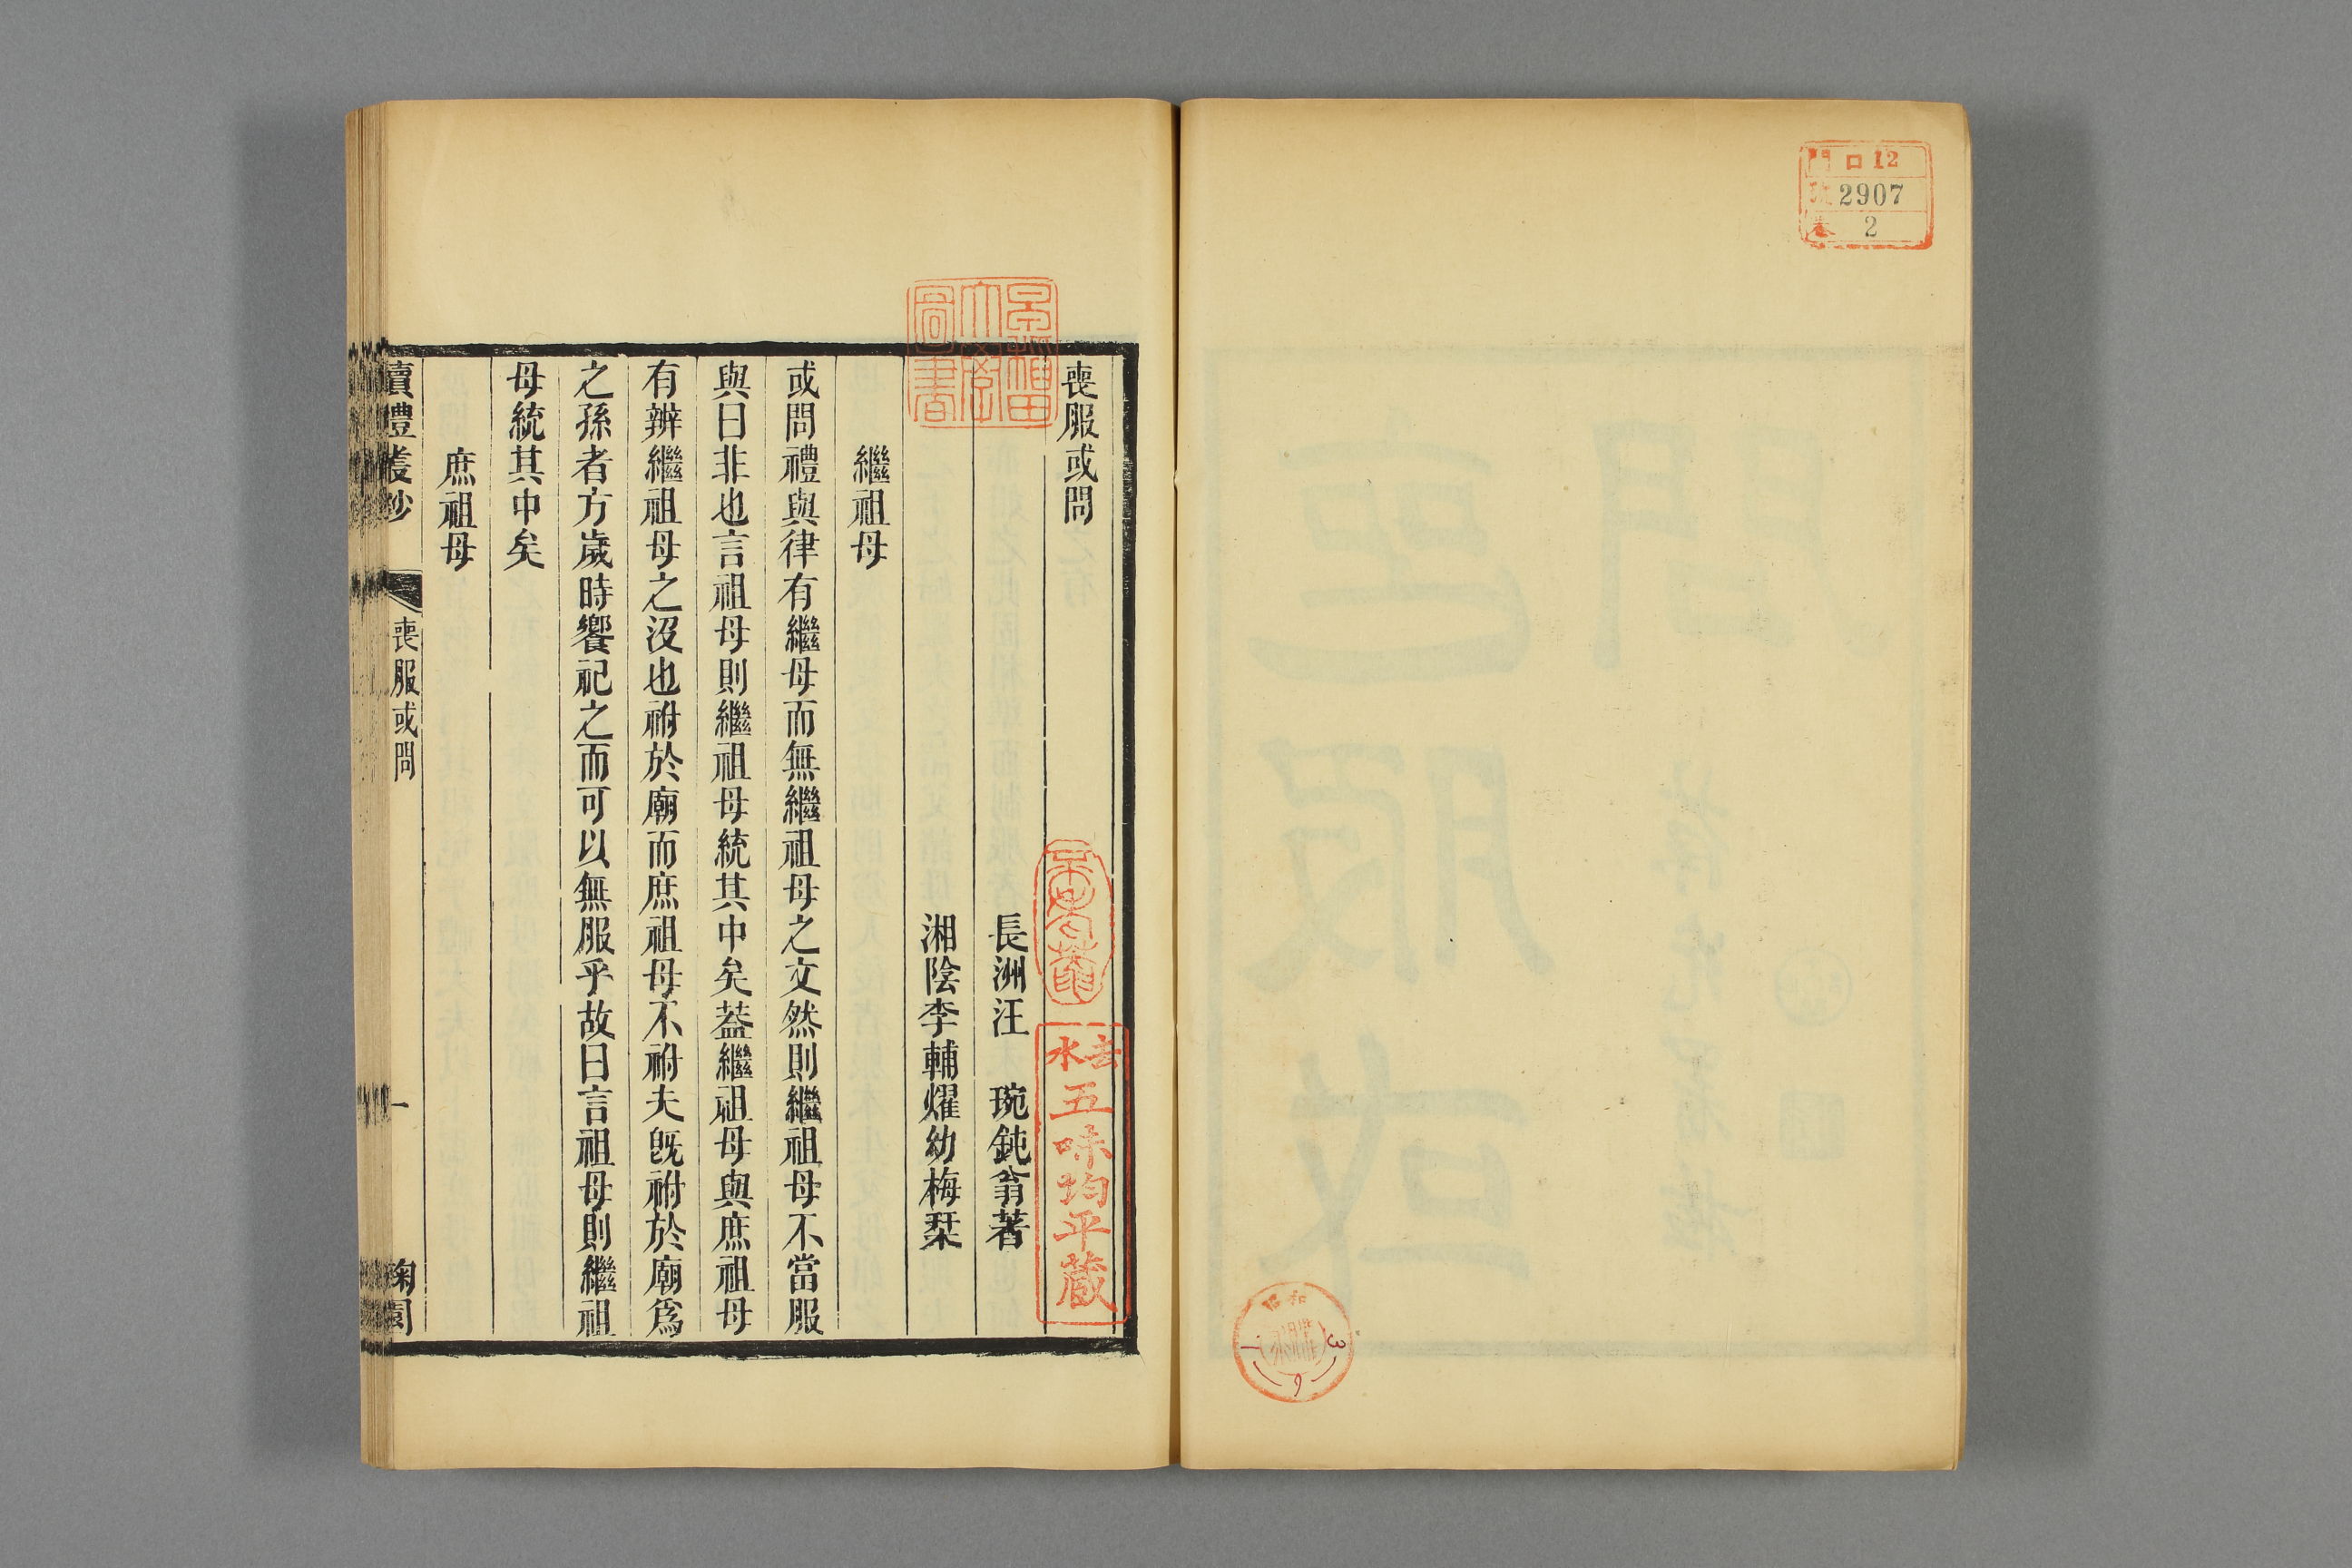 門 ロ12
號 2907
卷 2
昭和
3
6
喪服或問
長洲汪 琬鈍翁著
湘陰李輔燿幼梅栞
繼祖母
或問禮與律有繼母而無繼祖母之文然則繼祖母不當服
與曰非也言祖母則繼祖母統其中矣蓋繼祖母與庶祖母
有辨繼祖母之沒也祔於廟而庶祖母不祔夫旣祔於廟爲
之孫者方歲時饗祀之而可以無服乎故曰言祖母則繼祖
母統其中矣
庶祖母
讀禮叢鈔
喪服或問
一
早稲田
大學
圖書
五味均平蔵